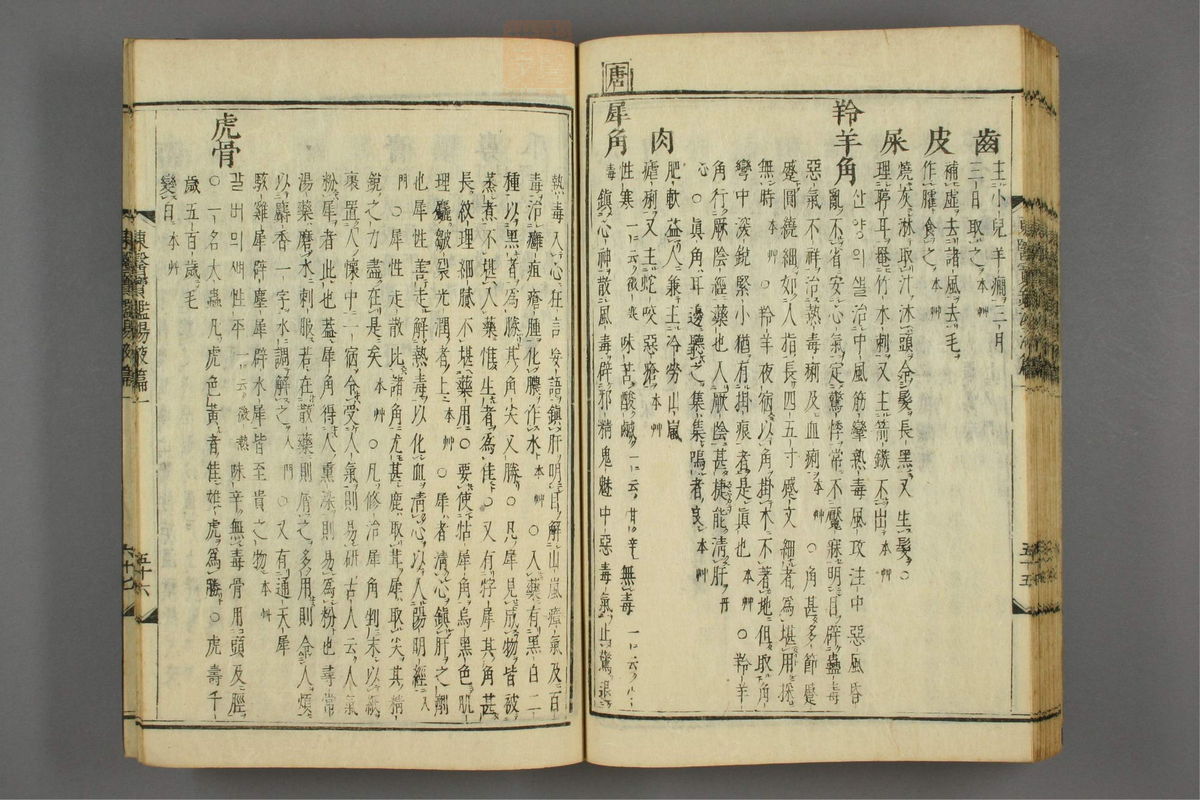 齒 主小兒羊癇三月
三日取之 本艸
皮 補虛去諸風去毛
作臛食之 本艸
屎 燒灰淋取汁沐頭令髮長黑又生髮○
理聤耳罯竹木刺又主箭鏃不出 本艸
羚羊角 산양의쁠治中風筋攣熱毒風攻注中惡風昏
亂不省安心氣定驚悸常不魘寐明目辟蠱毒
惡氣不祥治熱毒痢及血痢 本艸 ○角甚多節蹙
蹙圓繞細如人指長四五寸蹙文細者爲堪用採
無時 本艸 ○羚羊夜宿以角掛木不著地但取角
彎中深銳緊小猶有掛痕者是眞也 本艸 ○羚羊
角行厥陰經藥也人厥陰甚捷能淸肝 丹
心 ○眞角耳邊聽之集集鳴者良 本艸
肉 肥軟益人兼主冷勞山嵐
瘧痢又主蛇咬惡瘡 本艸
唐
犀角 性寒 一云微寒 味苦酸鹹 一云甘辛 無毒 一云小
毒 鎭心神散風毒辟邪精鬼魅中惡毒氣止驚退
熱毒入心狂言妄語鎭肝明目解山嵐瘴氣及百
毒治癰疽瘡腫化膿作水 本艸 ○入藥有黑白二
種以黑者爲勝其角尖又勝○凡犀見成物皆被
蒸煮不堪入藥惟生者爲佳○又有牸犀其角甚
長紋理細膩不堪藥用○要使牯犀角烏黑色肌
理麤皺裂光潤者上 本艸 ○犀者淸心鎭肝之劑
也犀性善走解熱毒以化血淸心以入人陽明經 入
門 ○犀性走散比諸角尤甚鹿取茸犀取尖其精
銳之力盡在是矣 本艸 ○凡修治犀角剉末以紙
裹置人懷中一宿令受人氣則易硏古人云人氣
粉犀者此也蓋犀角得人熏染則易爲粉也尋常
湯藥磨水刺服若在散藥則屑之多用則令人煩
以麝香一字水調解之 入門 ○又有通天犀
駭雞犀辟塵犀辟水犀皆至貴之物 本艸
虎骨 갈버믜뼈性平 一云微熱 味辛無毒骨用頭及脛
○一名大蟲凡虎色黃者佳雄虎爲勝○虎壽千
歲五百歲毛
變白 本艸
東醫寶鑑湯液篇一
五十六
六十七
五十五